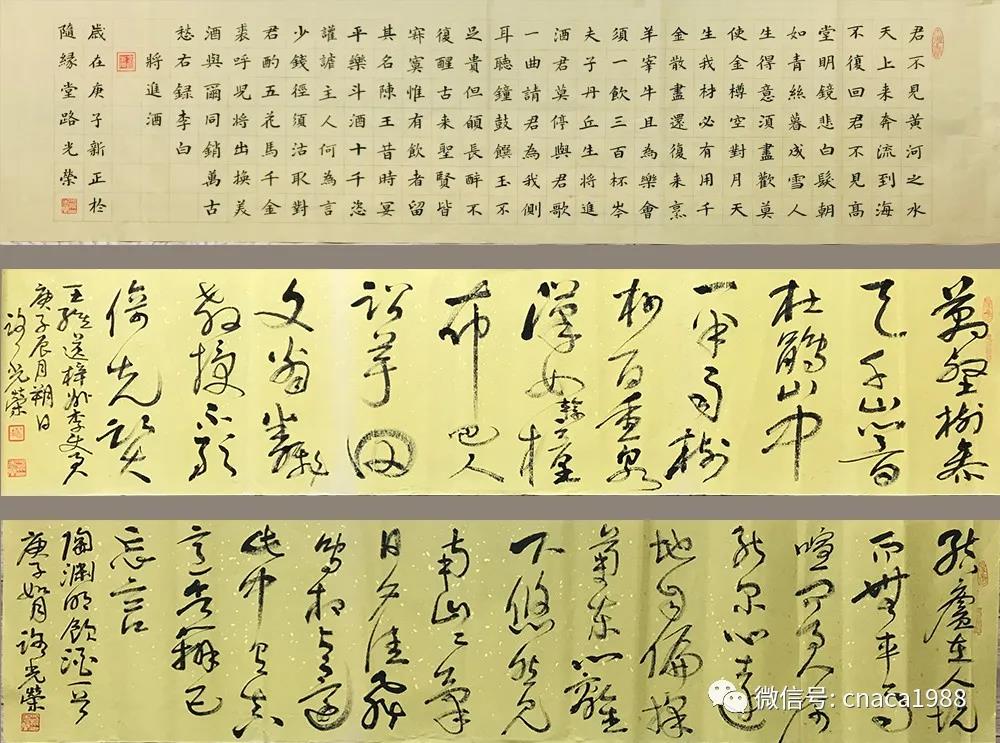 君不見黃河之水
天上来奔流到海
不復回君不見高
堂明鏡悲白髮朝
如青絲暮成雪人
生得意須盡歡莫
使金樽空對月天
生我材必有用千
金散盡還復来烹
羊宰牛且為樂會
須一飲三百杯岑
夫子丹丘生将進
酒君莫停與君歌
一曲請君為我側
耳聽鐘鼓饌玉不
足貴但願長醉不
復醒古来聖賢皆
寂寞惟有飲者留
其名陳王昔時宴
平樂斗酒十千恣
讙謔主人何為言
少錢徑須沽取對
君酌五花馬千金
裘呼兒将出換美
酒與爾同銷萬古
愁右録李白
将進酒
歲在庚子新正於
隨緣堂路光榮
萬壑樹参
天千山響
杜鵑山中
一半雨樹
杪百重泉
漢女輸橦
布巴人
訟芋田
文翁翻
教授不敢
倚先賢
王維送梓州李使君
庚子辰月朔日
路光榮
結廬在人境
而無車馬
喧問君何
能尔心遠
地自偏採
菊東籬
下悠然見
南山山氣
日夕佳飛
鳥相與還
此中有真
意欲辨已
忘言
陶淵明飲酒一首
庚子如月路光榮
微信号: cnaca1988